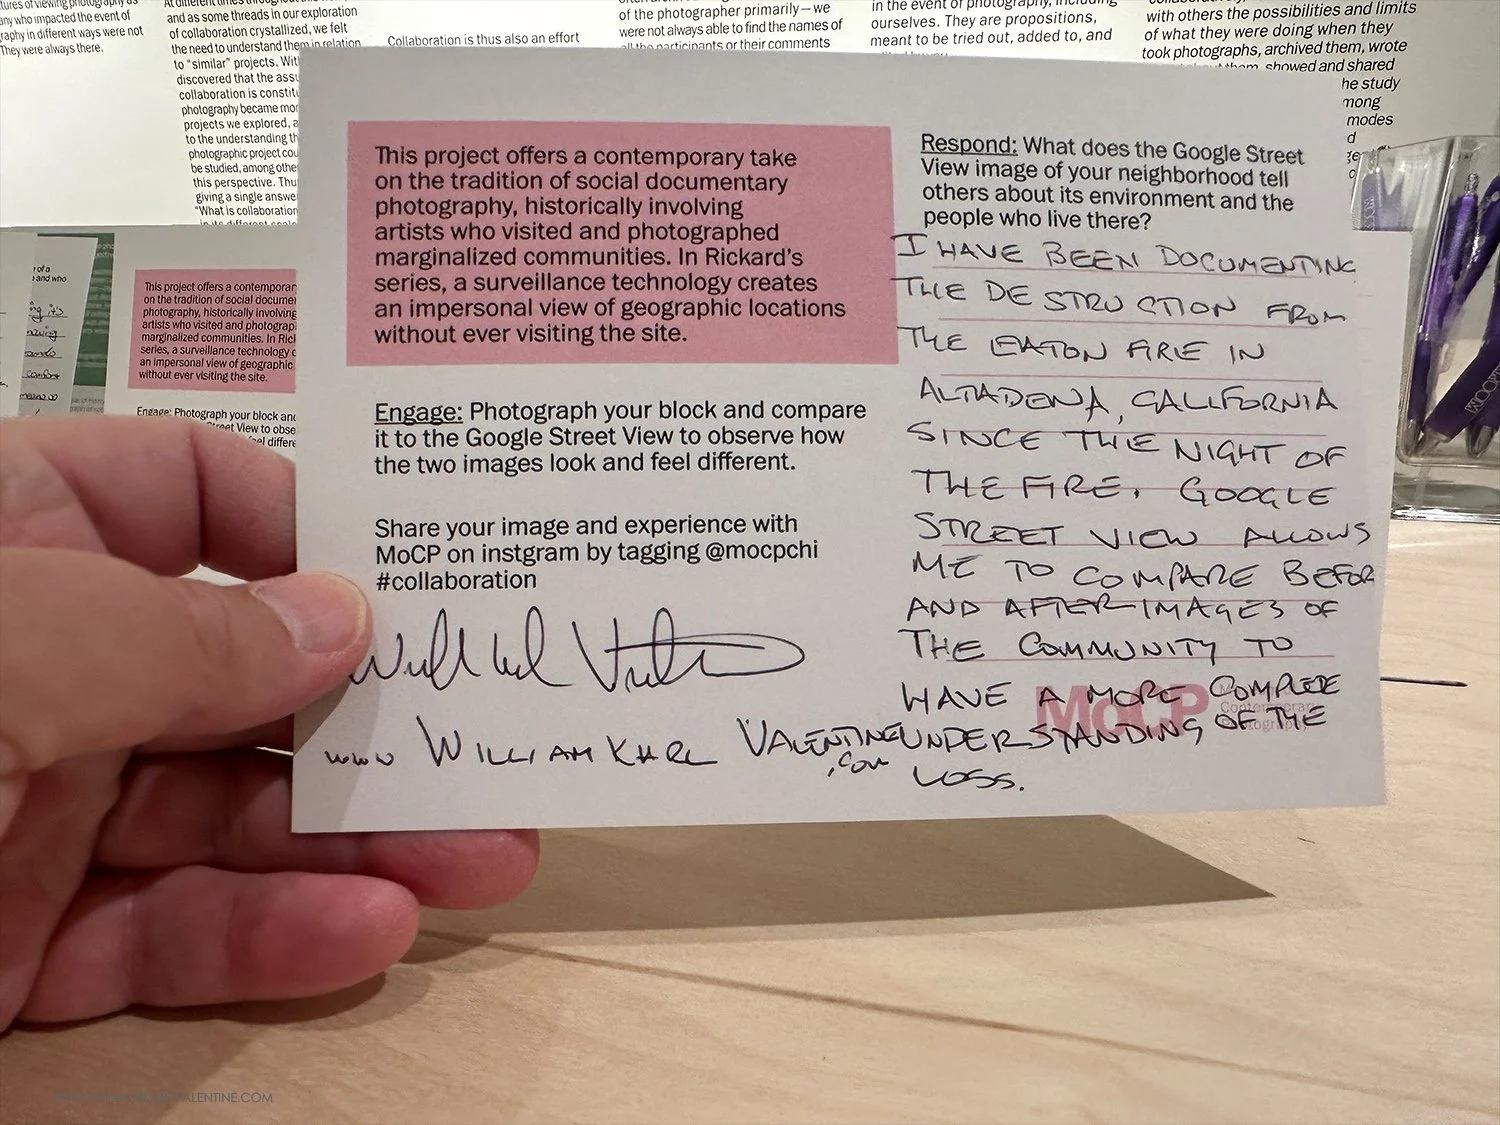 tures of viewing photography as
any who impacted the event of
raphy in different ways were not
They were always there.
and as some threads in our exploration
of collaboration crystallized, we felt
the need to understand them in relation
to “similar” projects. With
discovered that the
collaboration is
photography became
projects we explored,
to the understanding
photographic project
be studied, among
this perspective.
giving a single
"What is collaboration
Collaboration is thus also an effort
of the photographer primarily—we
were not always able to find the names of
all the participants or their comments
in the event of photography, including
ourselves. They are propositions,
meant to be tried out, added to, and
with others the possibilities and limits
of what they were doing when they
took photographs, archived them, wrote
them, showed and shared
the study
modes
This project offers a contemporary
on the tradition of social
photography, historically involving
artists who visited and
marginalized communities. In
series, a surveillance technology
an impersonal view of geographic
without ever visiting the site.
Engage: Photograph your block and
This project offers a contemporary take
on the tradition of social documentary
photography, historically involving
artists who visited and photographed
marginalized communities. In Rickard’s
series, a surveillance technology creates
an impersonal view of geographic locations
without ever visiting the site.
Engage: Photograph your block and compare
it to the Google Street View to observe how
the two images look and feel different.
Share your image and experience with
MoCP on instgram by tagging @mocpchi
#collaboration
www WILLIAM KARL VALENTINE
.com
Respond: What does the Google Street
View image of your neighborhood tell
others about its environment and the
people who live there?
I HAVE BEEN DOCUMENTING
THE DESTRUCTION FROM
THE EATON FIRE IN
ALTADENA, CALIFORNIA
SINCE THE NIGHT OF
THE FIRE. GOOGLE
STREET VIEW ALLOWS
ME TO COMPARE BEFOR
AND AFTER IMAGES OF
THE COMMUNITY TO
HAVE A MORE COMPLETE
UNDERSTANDING OF THE
LOSS.
MoCP
VALENTINE.COM